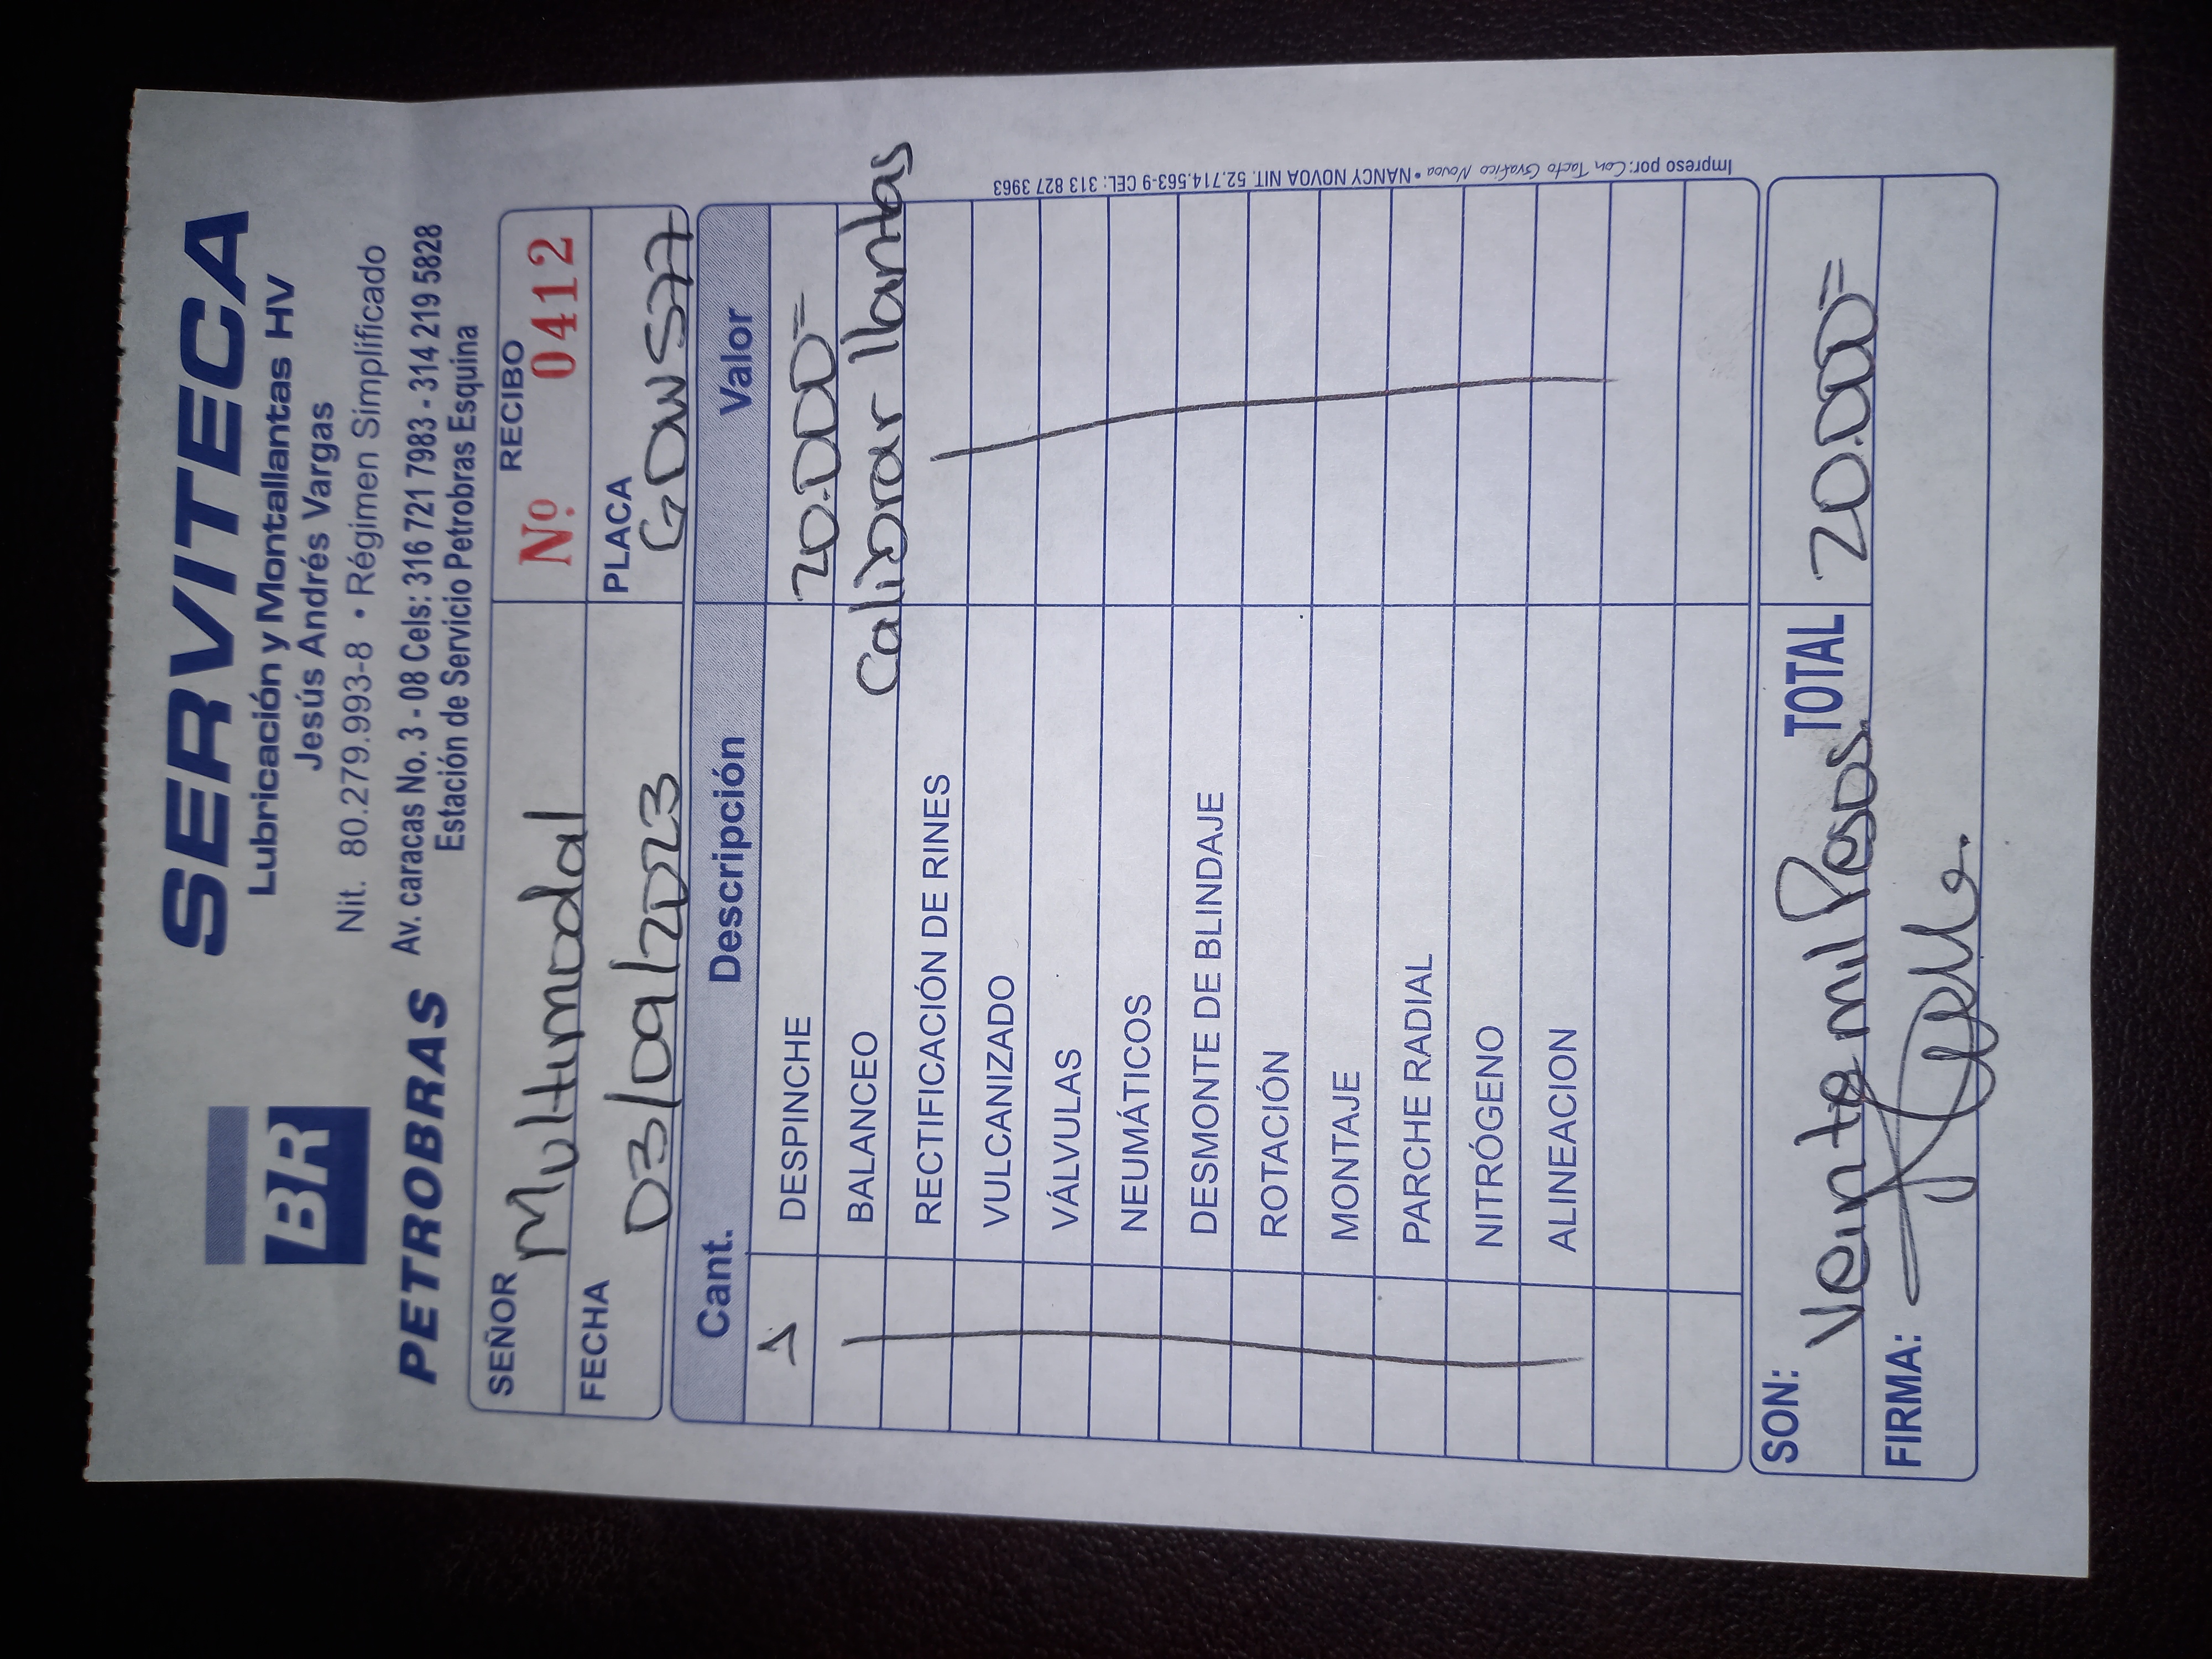 SERVITECA
Lubricación y Montallantas HV
Jesús Andrés Vargas
Nit. 80.279.993-8 • Régimen Simplificado
BR
PETROBRAS
Av. caracas No. 3 - 08 Cels: 316 721 7983 - 314 219 5828
Estación de Servicio Petrobras Esquina
SEÑOR Multimodal
RECIBO
Nº 0412
FECHA 03/09/2023
PLACA GDW577
Cant. Descripción Valor
1 DESPINCHE 20.000=
BALANCEO Calibrar llantas
RECTIFICACIÓN DE RINES
VULCANIZADO
VÁLVULAS
NEUMÁTICOS
DESMONTE DE BLINDAJE
ROTACIÓN
MONTAJE
PARCHE RADIAL
NITRÓGENO
ALINEACION
SON: Veinte mil Pesos. TOTAL 20.000=
FIRMA:
Impreso por: Con Tacto Grafico Novoa • NANCY NOVOA NIT. 52.714.563-9 CEL: 313 827 3963